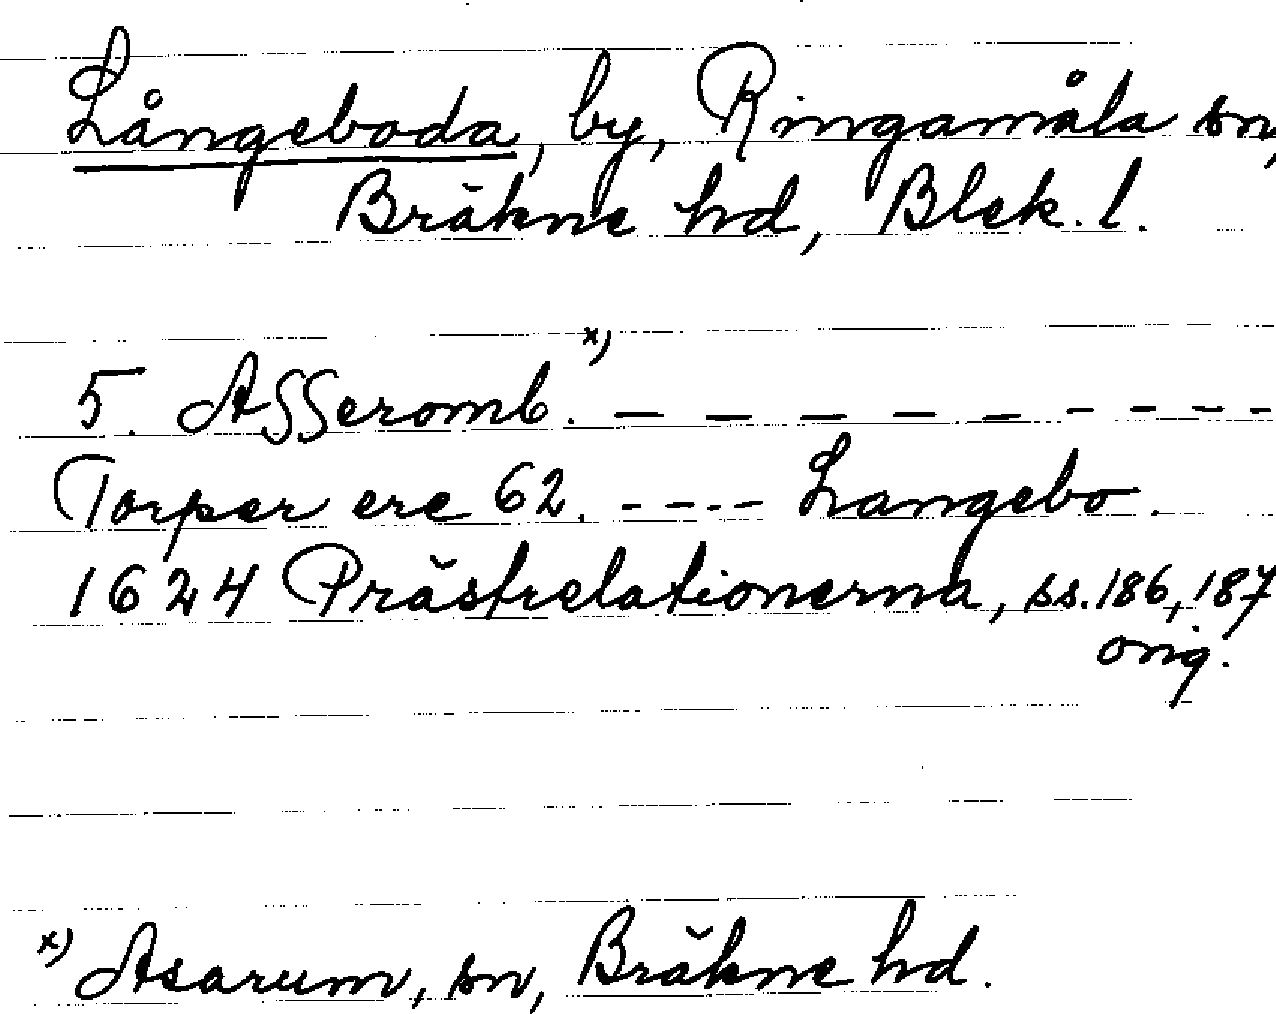 Långeboda, by, Ringamåla sn,
Bräkne hd, Blek. l.
5. Asseromb. x) — — — — — - - - -
Torper ere 62. - - - - Langebo.
1624 Prästrelationerna, ss. 186, 187
orig.
x) Asarum, sn, Bräkne hd.